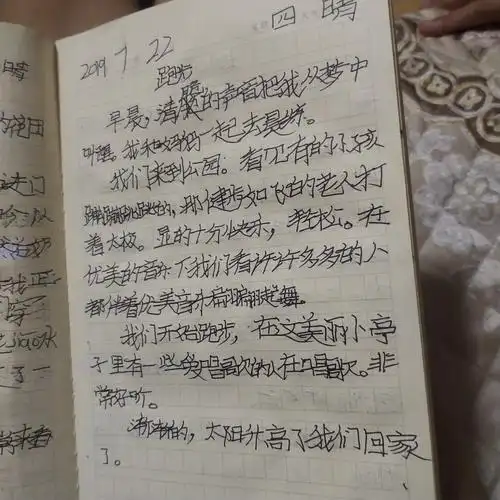 2019 7 22 四 晴
跑步
早晨，清脆的声音把我从梦中
叫醒。我和妈妈一起去晨练。
我们来到公园。看见有的小孩
蹦蹦跳跳的，那健步如飞的老人打
着太极。显的十分快乐，轻松。在
优美的音乐下我们看许许多多的人
都伴着优美音乐翩翩起舞。
我们开始跑步，在文美丽小亭
子里有一些爱唱歌的人在唱歌。非
常好听。
渐渐的，太阳升高了我们回家
了。
晴
的花田
进门